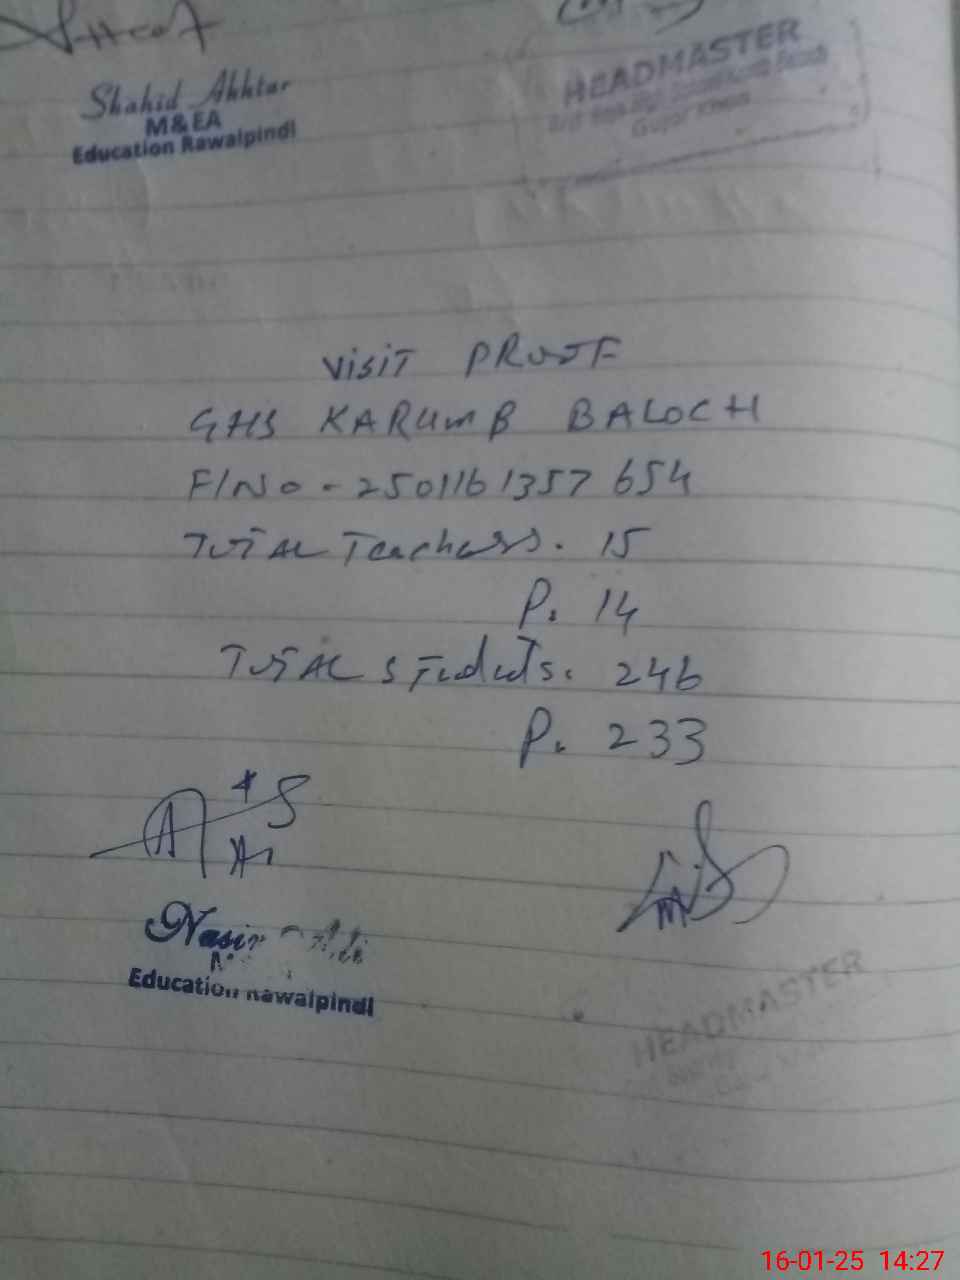 Shahid Akhtar
M&EA
Education Rawalpindi
HEADMASTER
Gujar Khan
VISIT PROOF
GHS KARUMB BALOCH
F/NO - 2501161357 654
TOTAL Teachers. 15
P. 14
TOTAL STudents. 246
P. 233
Nasir Ali
Education Rawalpindi
HEADMASTER
16-01-25 14:27